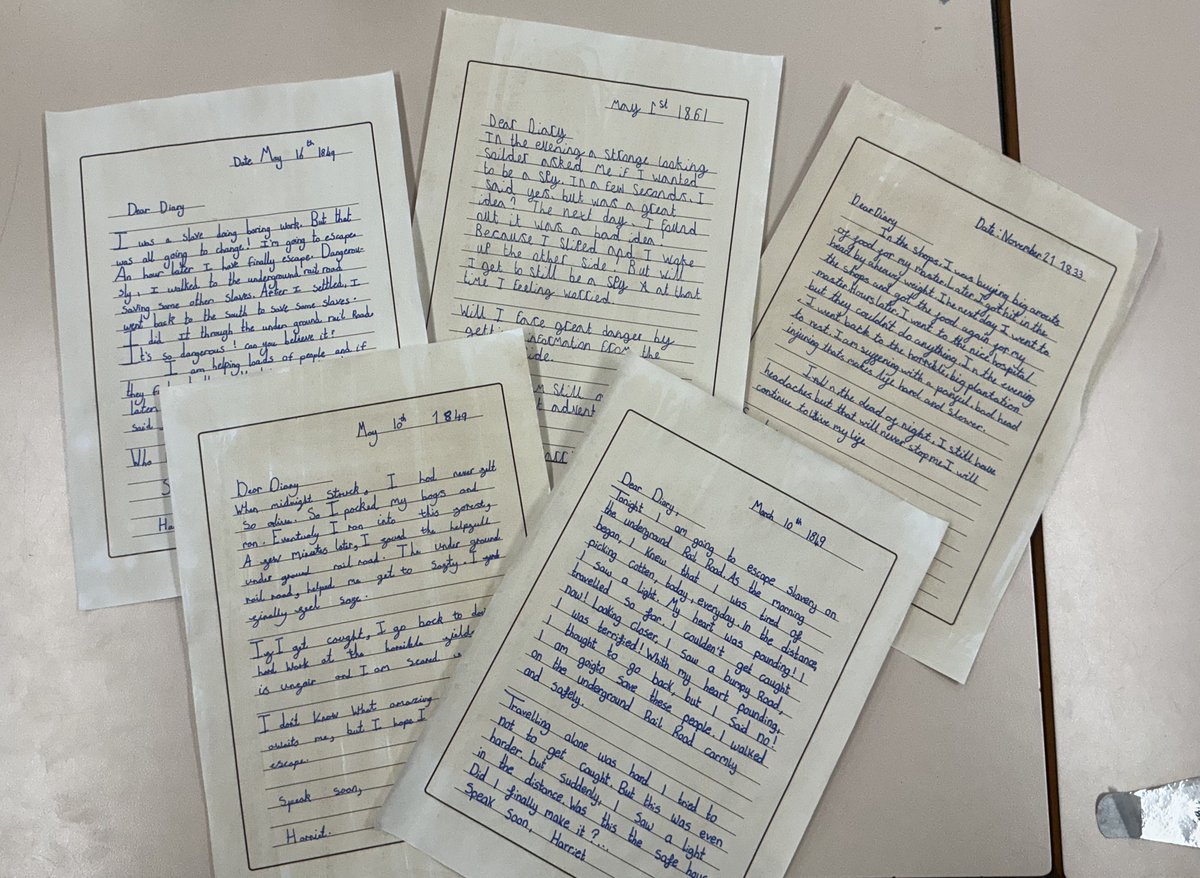 Date May 16th 1849
Dear Diary
I was a slave doing boring work. But that
was all going to change! I'm going to escape.
An hour later I have finally escape. Dangerou-
sly, I walked to the underground rail road
saving some other slaves. After I settled, I
went back to the south to save some slaves.
I did it through the under ground rail Road.
It's so dangerous! can you believe it?
I am helping loads of people and if
they
later
said
Who
S
Ha
May 1st 1861
Dear Diary
In the evening a strange looking
soilder asked me if I wanted
to be a spy. In a few seconds, I
said yes, but was a great
iden? The next day, I found
out it was a bad iden!
Because I sliped and I wake
up the other side! But will
I get to still be a spy & at that
time I feeling worried.
Will I face great danger by
information from the
ide.
m still
advent
Date: November 21 1833
Dear Diary
In the shops, I was buying big amouts
of good for my master. Later, my got hit in the
head by a heavy weight. The next day I went to
the shops and got the good again for my
master. Hours later, I went to the nice hospital
but they couldn't do anything. In the evening
I went back to the horrible, big plantation
to rest. I am suffering with a painful, bad head
injuring thats makes life hard and slower.
In the dead of night, I still have
headaches but that will never stop me. I will
continue to live my life
May 10th 1849
Dear Diary
When midnight struck, I had never felt
so alive. So I packed my bags and
ran. Eventualy I ran into this forest,
A few minutes later, I found the helpfull
under ground rail road. The under ground
rail road, helped me get to safty. I
finally feel safe.
If I get caught, I go back to doi
hard work at the horrible field
is unfair and I am scared
I don't know what amazing
awaits me, but I hope I
escape.
Speak soon,
Harriet.
March 10th 1849
Dear Diary,
Tonight I am going to escape slavery on
the underground Rail Road. As the morning
began, I knew that I was tired of
picking cotten, today, everyday. In the distance,
I saw a light. My heart was pounding! I
travelled so far. I couldn't get caught
now! Looking closer, I saw a bumpy Road,
I was terrified! Whith my heart pounding,
I thought to go back, but I said no!
I am goigto save these people. I walked
on the underground Rail Road carmly
and safely.
Travelling alone was hard I tried to
not to get caught. But this was even
harder. but suddenly, I saw a light
in the distance. Was this the safe hous
Did I finally make it?...
Speak soon, Harriet